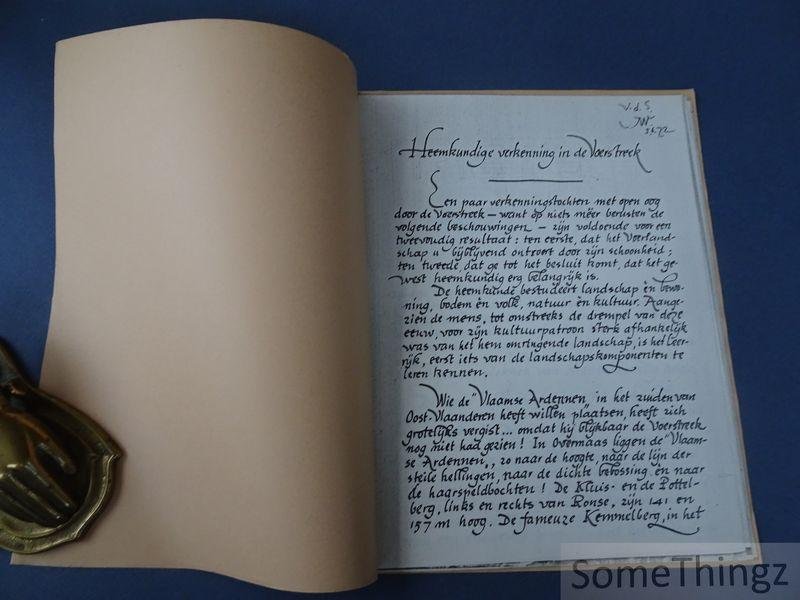 V.d.S.
JW.
Heemkundige verkenning in de Voerstreek
Een paar verkenningstochten met open oog
door de Voerstreek – want op niets méér berusten de
volgende beschouwingen – zijn voldoende voor een
tweevoudig resultaat: ten eerste, dat het Voerland-
schap u bijblijvend ontroert door zijn schoonheid;
ten tweede dat ge tot het besluit komt, dat het ge-
west heemkundig erg belangrijk is.
De heemkunde bestudeert landschap èn bewo-
ning, bodem èn volk, natuur èn kultuur. Aange-
zien de mens, tot omstreeks de drempel van deze
eeuw, voor zijn kultuurpatroon sterk afhankelijk
was van het hem omringende landschap, is het leer-
rijk, eerst iets van de landschapskomponenten te
leren kennen.
Wie de "Vlaamse Ardennen" in het zuiden van
Oost-Vlaanderen heeft willen plaatsen, heeft zich
grotelijks vergist... omdat hij blijkbaar de Voerstreek
nog niet had gezien! In Overmaas liggen de "Vlaam-
se Ardennen", zo naar de hoogte, naar de lijn der
steile hellingen, naar de dichte bebossing èn naar
de haarspeldbochten! De Kluis- en de Pottel-
berg, links en rechts van Ronse, zijn 141 en
157 m hoog. De fameuze Kemmelberg, in het
SomeThingz